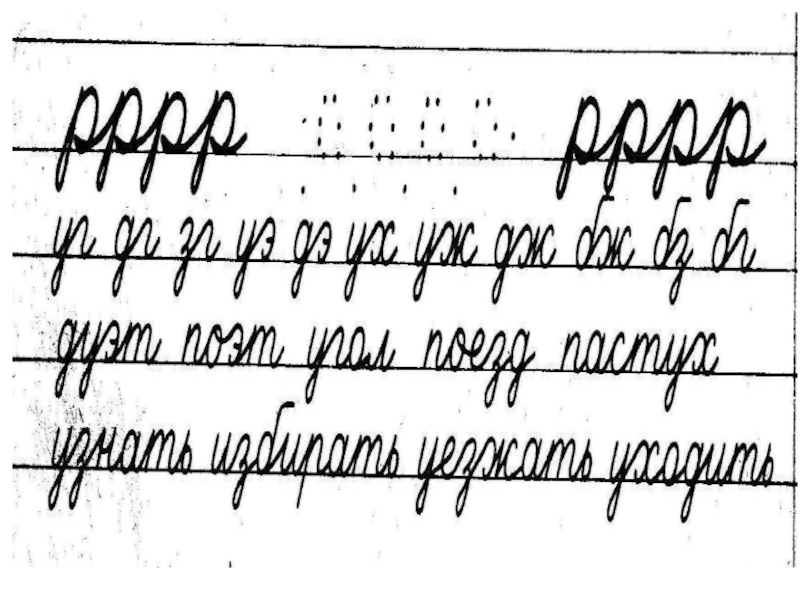 рррр рррр
уг дг зг уэ дэ ух уж дж бж бз бг
дуэт поэт угол поезд пастух
узнать избирать уезжать уходить